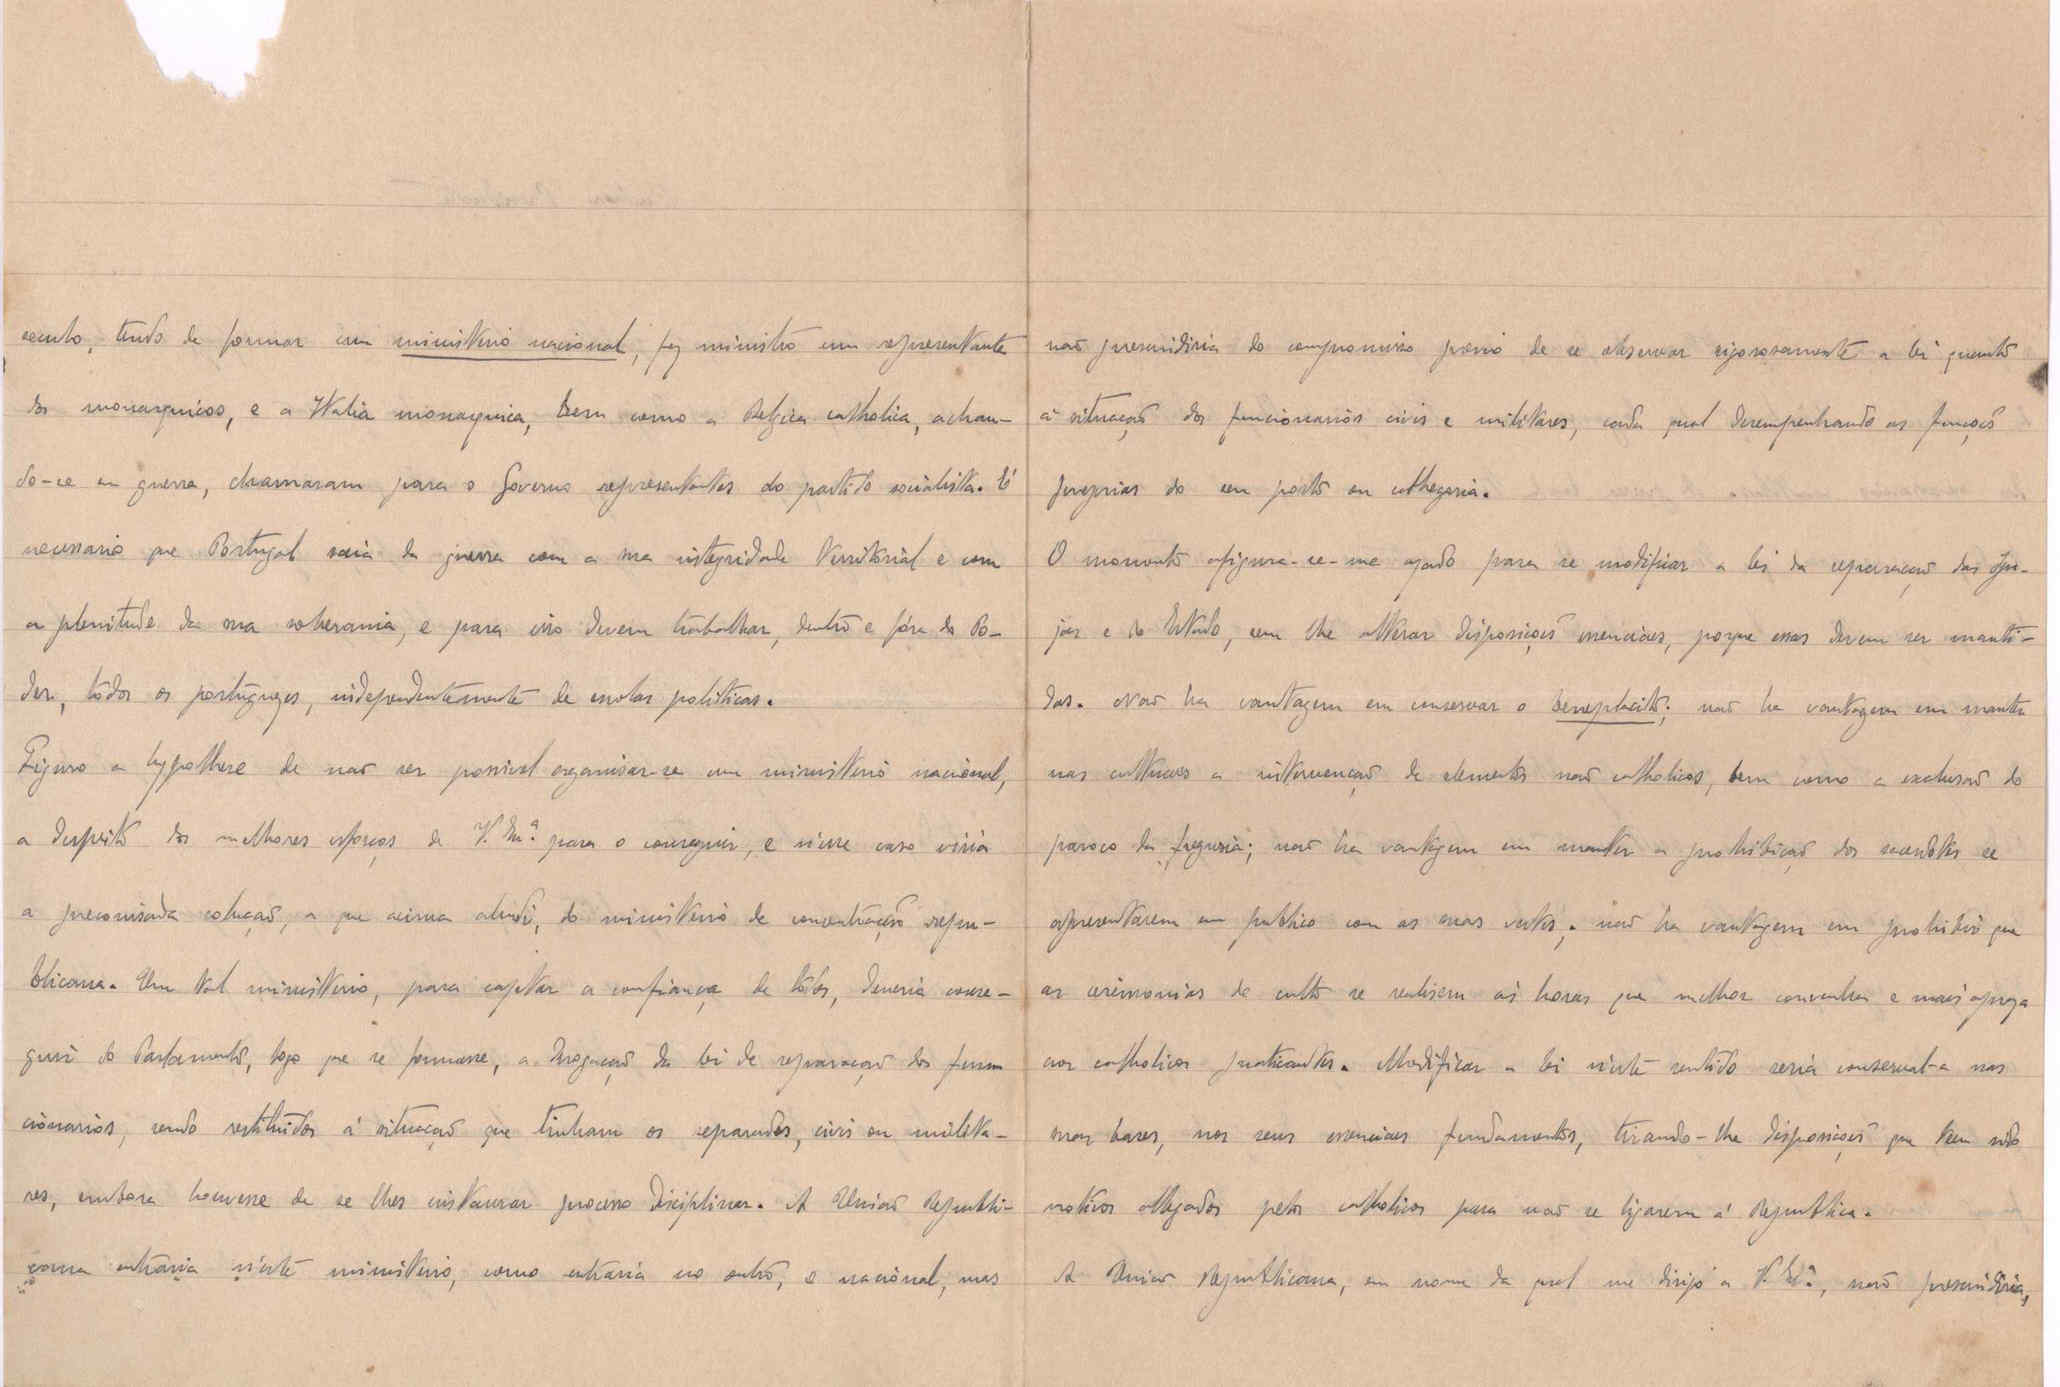 seculo, tendo de formar um ministerio nacional, fez ministro um representante
dos monarquicos, e a Italia monarquica, bem como a Belgica catholica, achan-
do-se em guerra, chamaram para o Governo representantes do partido socialista. É
necessario que Portugal saia da guerra com a sua integridade territorial e com
a plenitude da sua soberania, e para isso devem trabalhar, dentro e fóra do Po-
der, todos os portuguezes, independentemente de escolas politicas.
Figuro a hypothese de não ser possivel organisar-se um ministerio nacional,
a despeito dos melhores esforços de V. Exª para o conseguir, e n'esse caso viria
a preconisada solução, a que acima aludi, do ministerio de concentração repu-
blicana. Um tal ministerio, para captar a confiança de todos, deveria conse-
guir do Parlamento, logo que se formasse, a derogação da lei de separação dos funcc
cionarios, sendo restituidos á situação que tinham os separados, civis ou milita-
res, embora houvesse de se lhes instaurar processo disciplinar. A União Republi-
cana entraria n'este ministerio, como entraria no outro, o nacional, mas
não prescindiria do compromisso previo de se observar rigorosamente a lei quanto
á situação dos funcionarios civis e militares, cada qual desempenhando as funções
proprias do seu posto ou cathegoria.
O momento afigura-se-me azado para se modificar a lei da separação das Igre-
jas e do Estado, sem lhe alterar disposições essenciaes, porque essas devem ser manti-
das. Não ha vantagem em conservar o beneplacito; não ha vantagem em manter
nas cultuaes a intervenção de elementos não catholicos, bem como a exclusão do
paroco da freguesia; não ha vantagem em manter a prohibição dos sacerdotes se
apresentarem em publico com as suas vestes; não ha vantagem em prohibir que
as ceremonias do culto se realisem ás horas que melhor convenha e mais apraza
aos catholicos praticantes. Modificar a lei n'este sentido seria conserval-a nas
suas bases, nos seus essenciaes fundamentos, tirando-lhe disposições que teem sido
motivos allegados pelos catholicos para não se ligarem á Republica.
A União Republicana, em nome da qual me dirijo a V. Exª, não prescindiria,